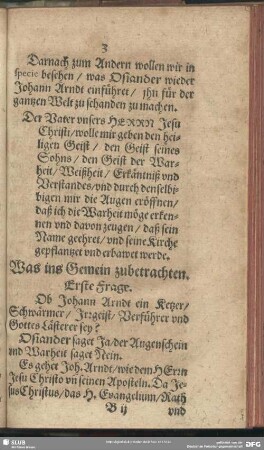 3
Darnach zum Andern wollen wir in
specie besehen / was Osiander wieder
Johann Arndt einführet / jhn für der
gantzen Welt zu schanden zu machen.
Der Vater vnsers HERRN Jesu
Christi / wolle mir geben den hei-
ligen Geist / den Geist seines
Sohns / den Geist der War-
heit / Weißheit / Erkäntniß vnd
Verstandes / vnd durch denselbi-
bigen mir die Augen eröffnen /
daß ich die Warheit möge erken-
nen vnd davon zeugen / daß sein
Name geehret / vnd seine Kirche
gepflantzet vnd erbawet werde.
Was ins Gemein zubetrachten.
Erste Frage.
Ob Johann Arndt ein Ketzer /
Schwärmer / Jrrgeist / Verführer vnd
Gottes Lästerer sey?
Osiander saget Ja / der Augenschein
vnd Warheit saget Nein.
Es gehet Joh. Arndt / wie dem HErrn
Jesu Christo vñ seinen Aposteln. Da Je-
sus Christus / das H. Evangelium / Rath
B ij
vnd
SLUB